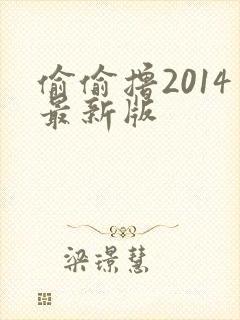 偷偷撸2014
最新版
梁璟慧